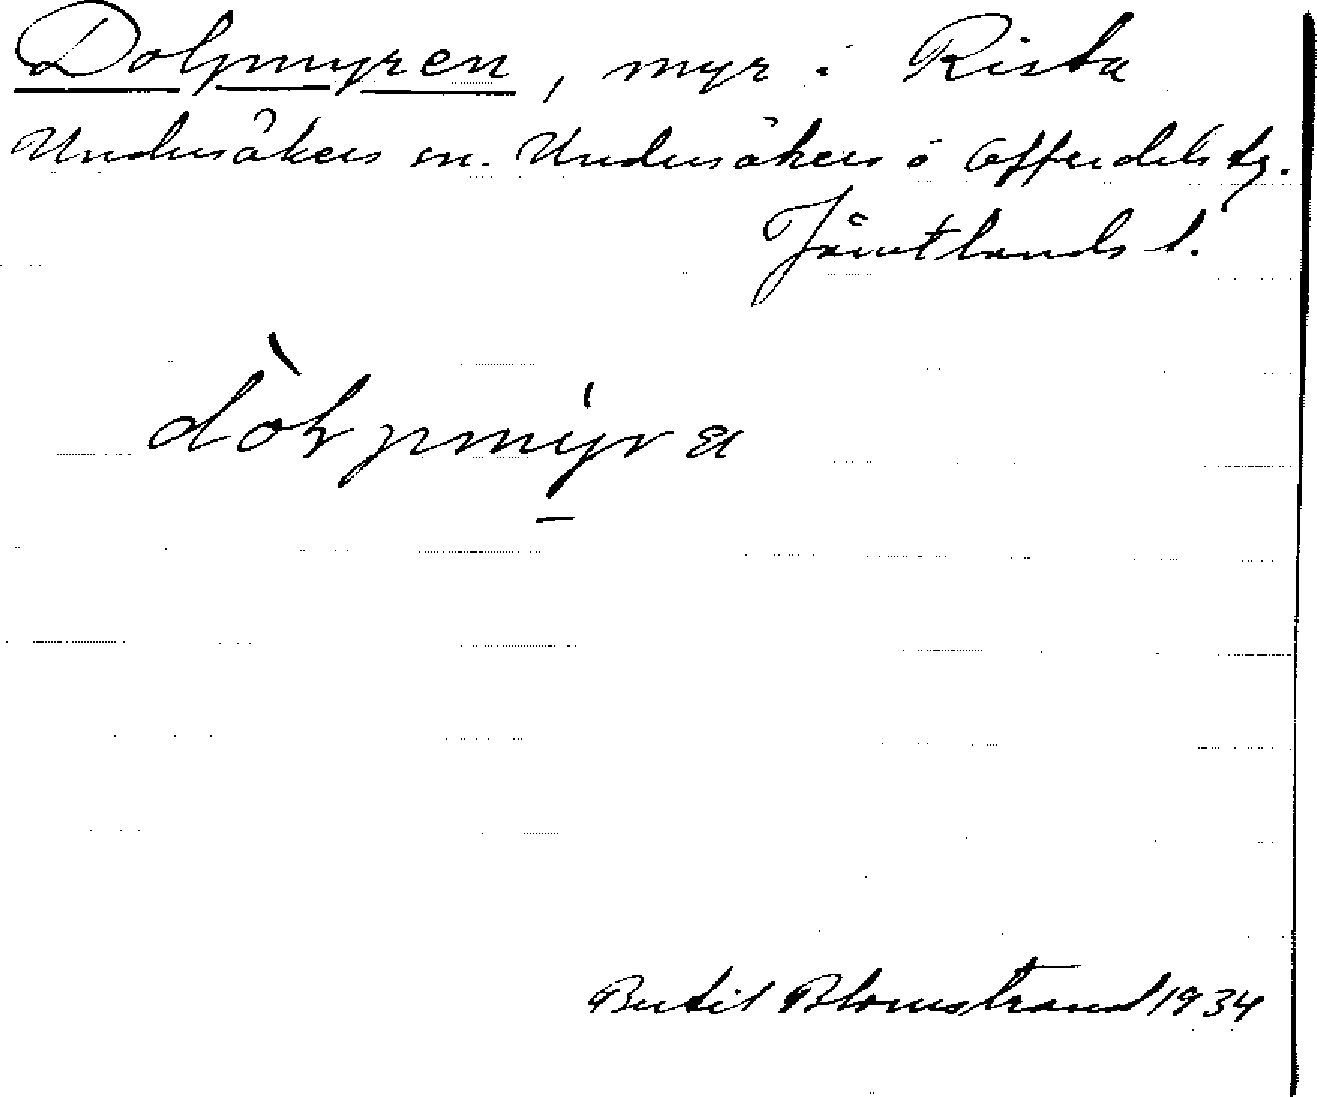 Dolpmyren, myr i Rista
Undersåkers sn. Undersåkers o Offerdals tg.
Jämtlands l.
Bertil Blomstrand 1934